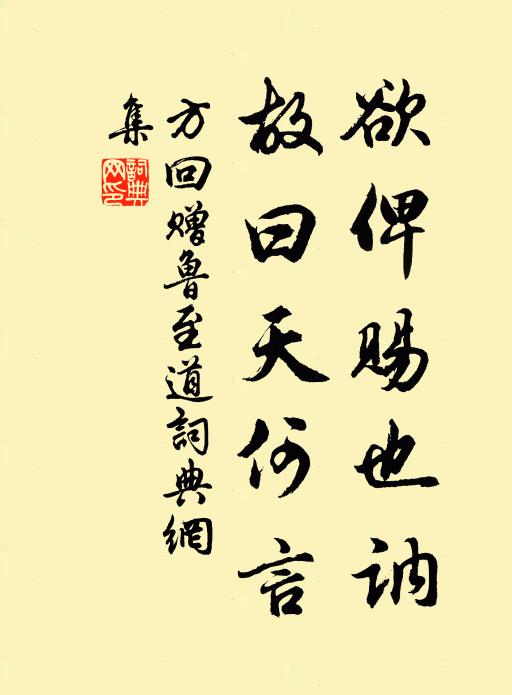 欲俾賜也訥
故曰天何言
方回贈魯至道詞典網
集
詞典網印